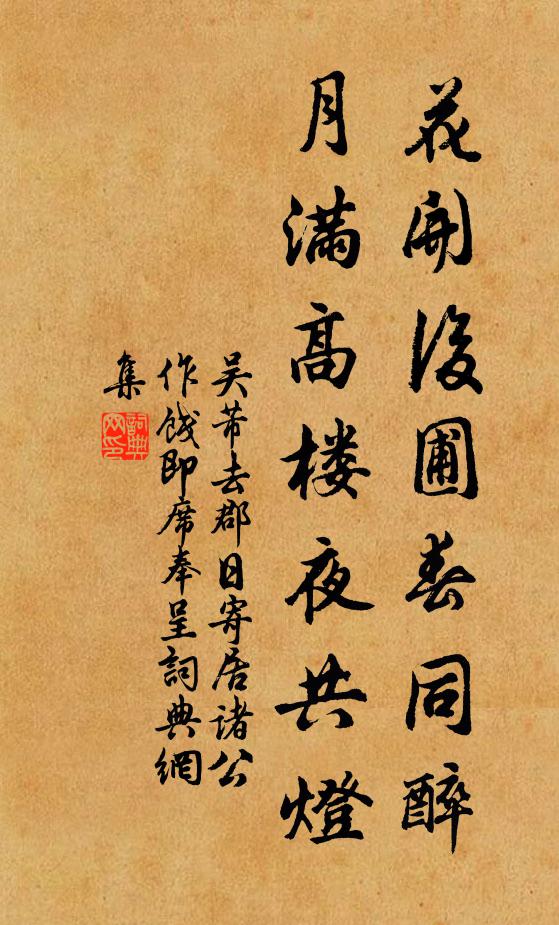 花開後圃春同醉
月滿高樓夜共燈
吴芾去郡日寄居諸公
作餞即席奉呈詞典網
集
詞典
网印